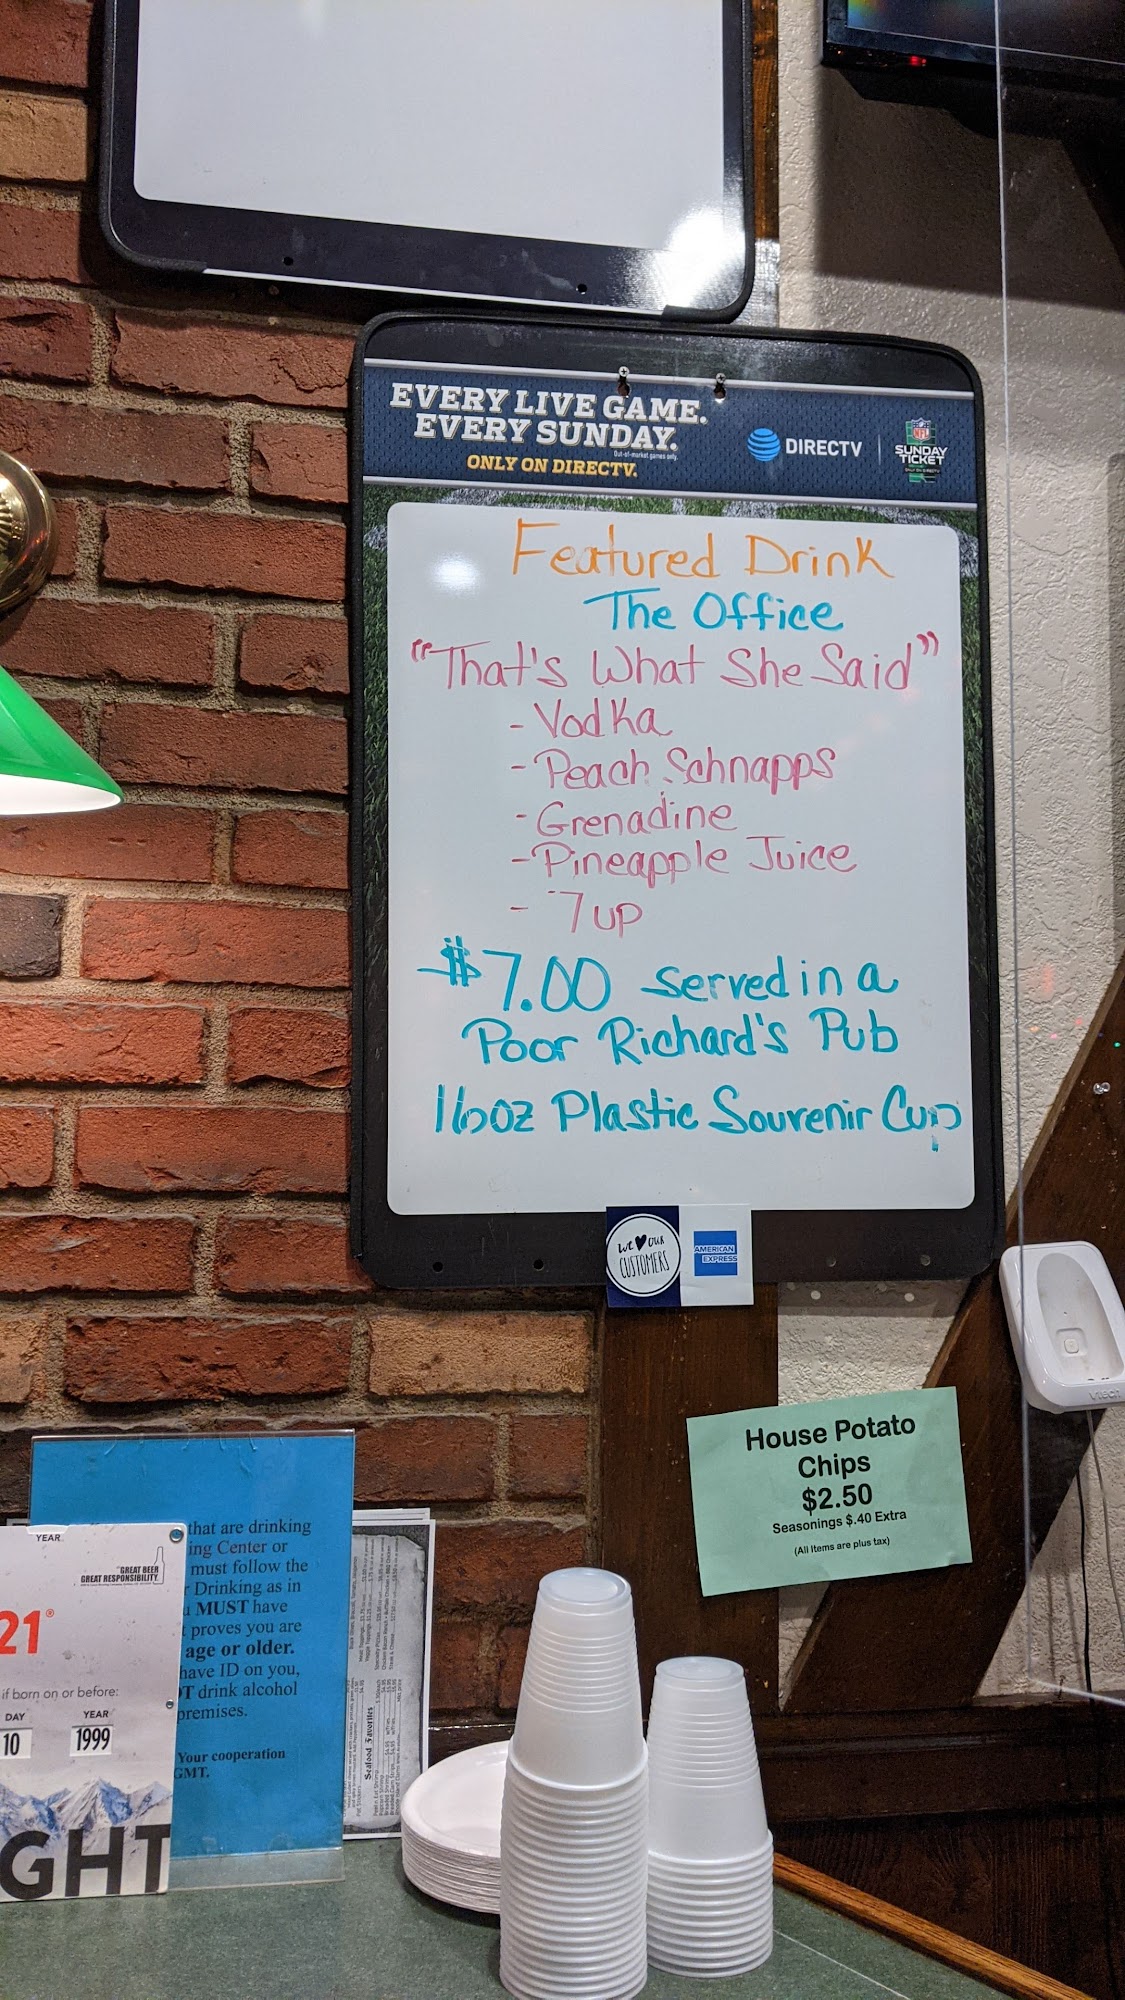 EVERY LIVE GAME.
EVERY SUNDAY.
Out-of-market games only.
ONLY ON DIRECTV.
DIRECTV
NFL
SUNDAY
TICKET
ONLY ON DIRECTV
Featured Drink
The Office
"That's What She Said"
- Vodka
- Peach Schnapps
- Grenadine
- Pineapple Juice
- 7up
$7.00 served in a
Poor Richard's Pub
16oz Plastic Souvenir Cup
WE OUR
CUSTOMERS
AMERICAN
EXPRESS
vtech
House Potato
Chips
$2.50
Seasonings $.40 Extra
(All Items are plus tax)
that are drinking
ing Center or
must follow the
Drinking as in
MUST have
proves you are
age or older.
have ID on you,
drink alcohol
premises.
Your cooperation
GMT.
YEAR
GREAT BEER
GREAT RESPONSIBILITY.
21
if born on or before:
DAY YEAR
10 1999
GHT
Seafood Favorites